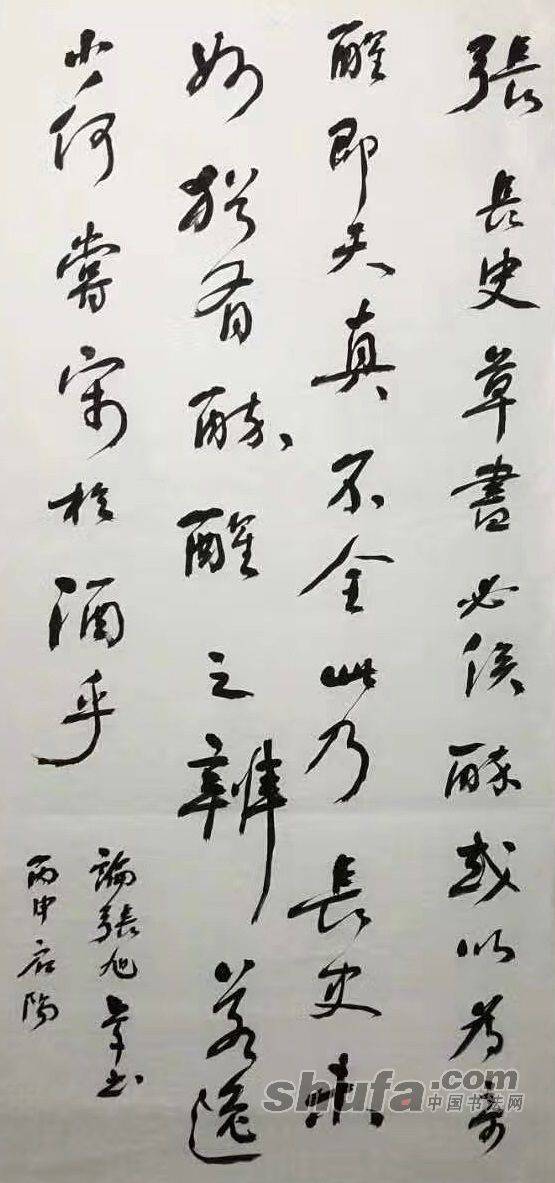 張長史草書必俟醉或以為奇
醒即天真不全此乃長史未
妙猶有醉醒之辨若逸
少何嘗寄於酒乎
論張旭草书
丙申
shufa.com
中国书法网